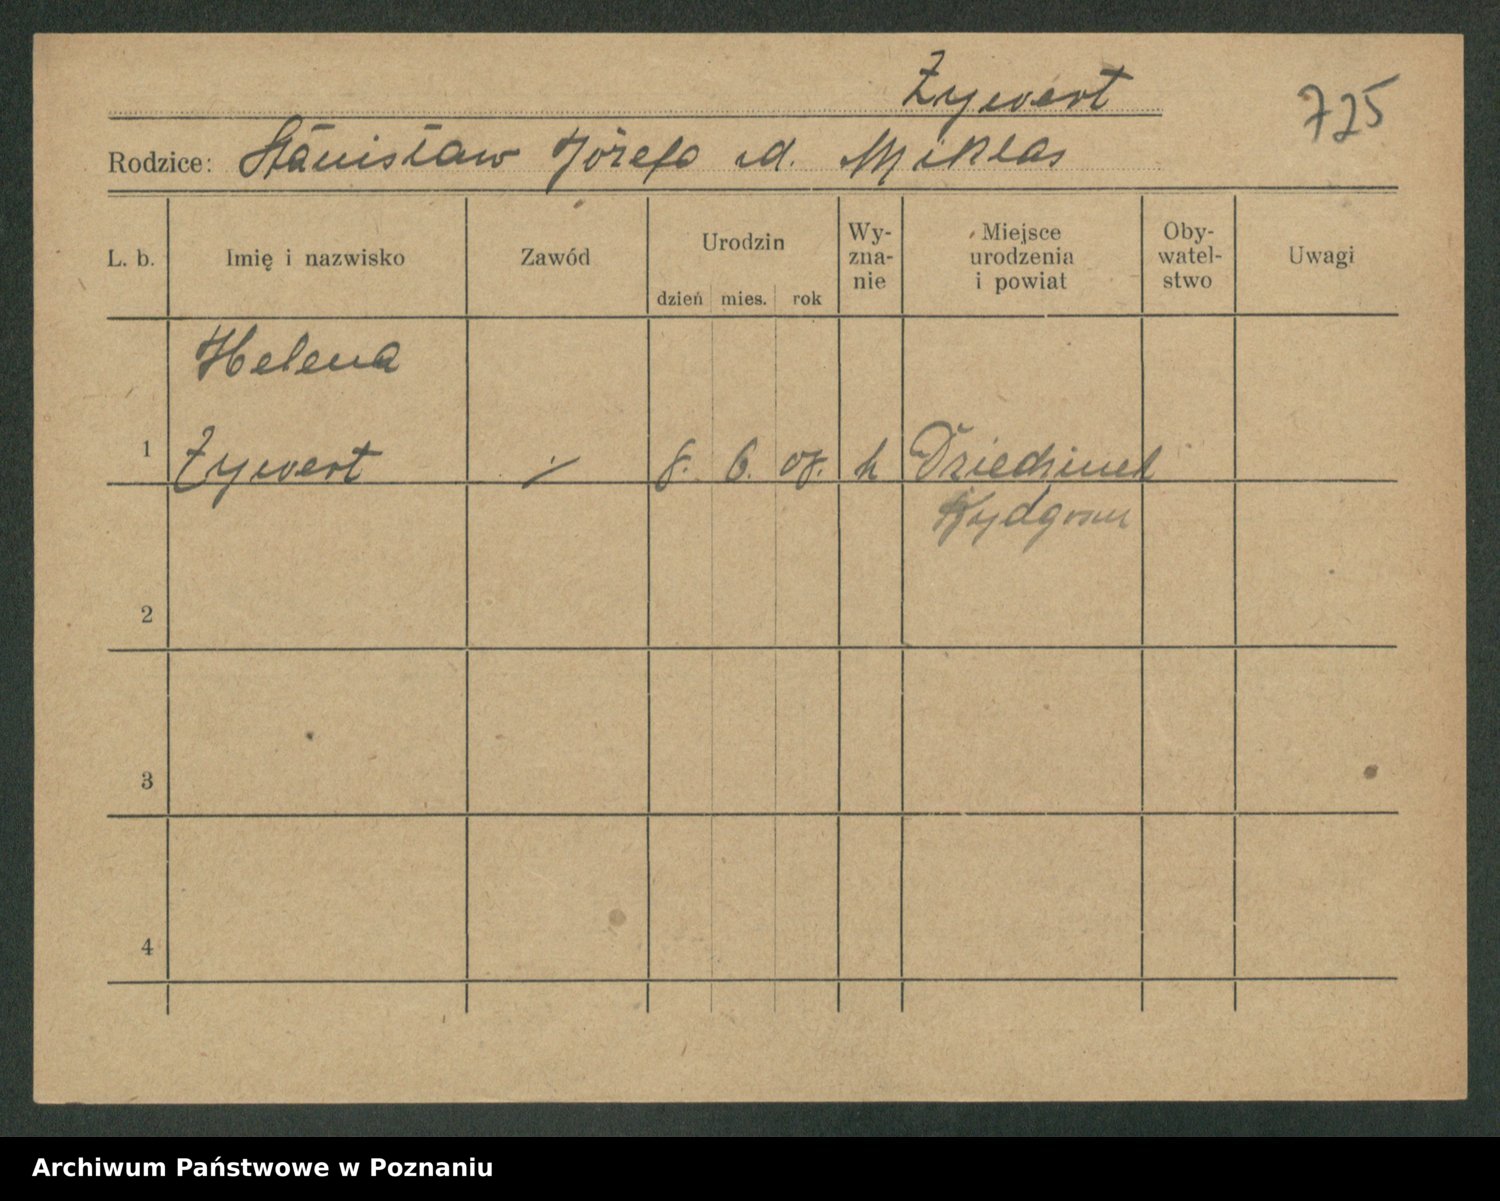 Zywert
725
Rodzice: Stanisław Józefa d. Miklas
L. b. Imię i nazwisko Zawód Urodzin dzień mies. rok Wy-zna-nie Miejsce urodzenia i powiat Oby-watel-stwo Uwagi
Helena
1 Zywert ./. 8. 6. 08. k Dziedzinek
Bydgoszcz
2
3
4
Archiwum Państwowe w Poznaniu